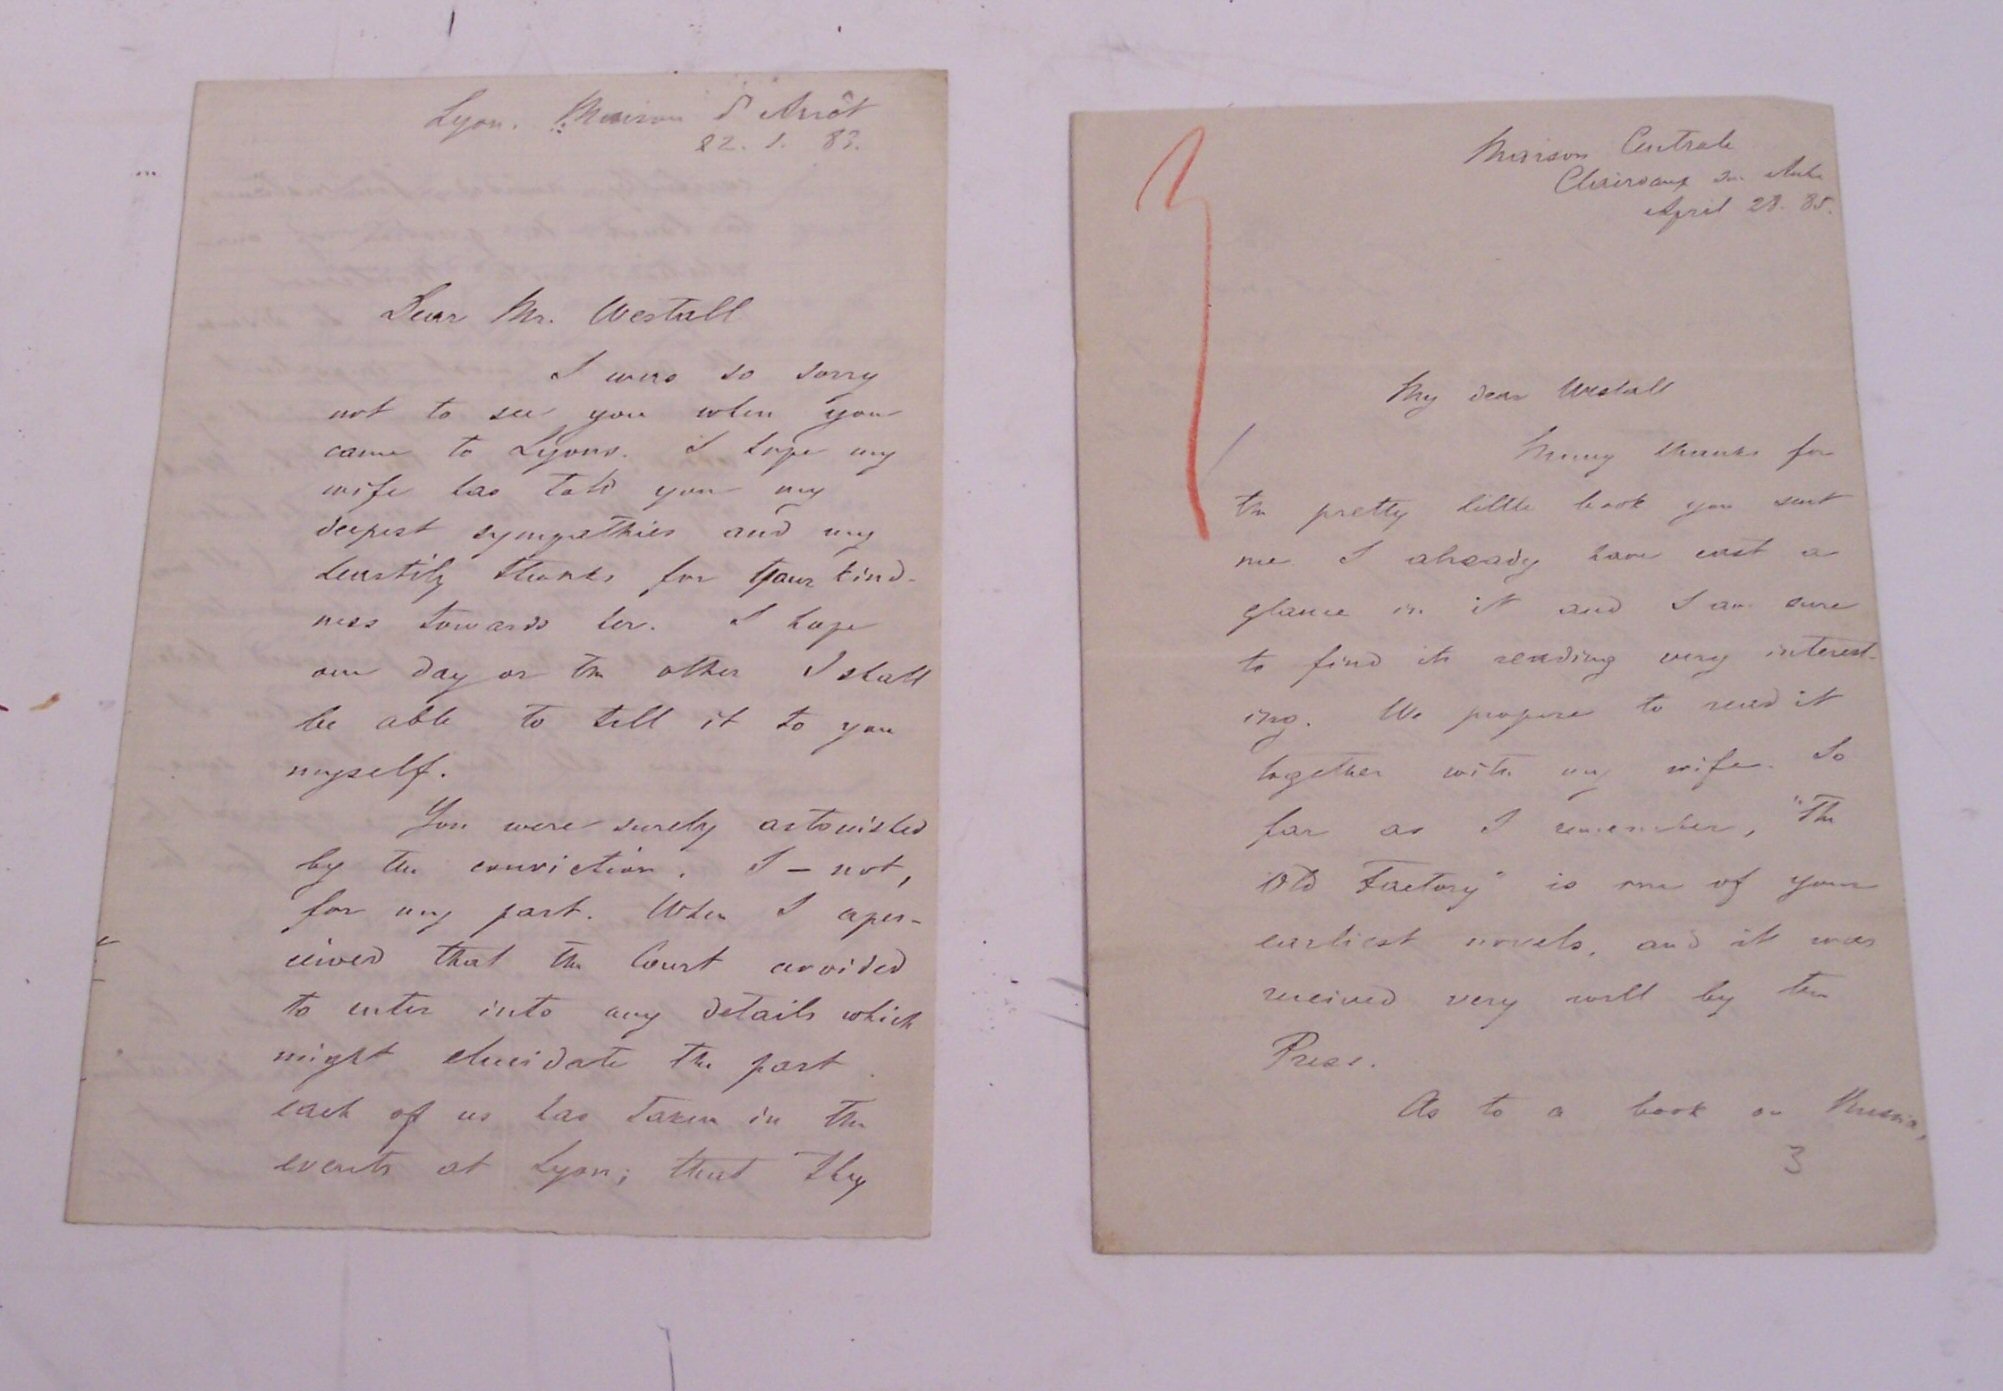 Lyon. Maison d'Arrêt
22. 1. 83.
Dear Mr. Westall
I was so sorry
not to see you when you
came to Lyons. I hope my
wife has told you my
deepest sympathies and my
heartily thanks for your kind-
ness towards her. I hope
one day or the other I shall
be able to tell it to you
myself.
You were surely astonished
by the conviction. I – not,
for my part. When I aper-
ceived that the Court avoided
to enter into any details which
might elucidate the part
each of us has taken in the
events at Lyon; that they
Maison Centrale
Clairvaux Aube
April 28. 85.
My dear Westall
Many thanks for
the pretty little book you sent
me I already have cast a
glance in it and I am sure
to find its reading very interest-
ing. We propose to read it
together with my wife. So
far as I remember, "The
Old Factory" is one of your
earliest novels, and it was
received very well by the
Press.
As to a book on Russia,
3